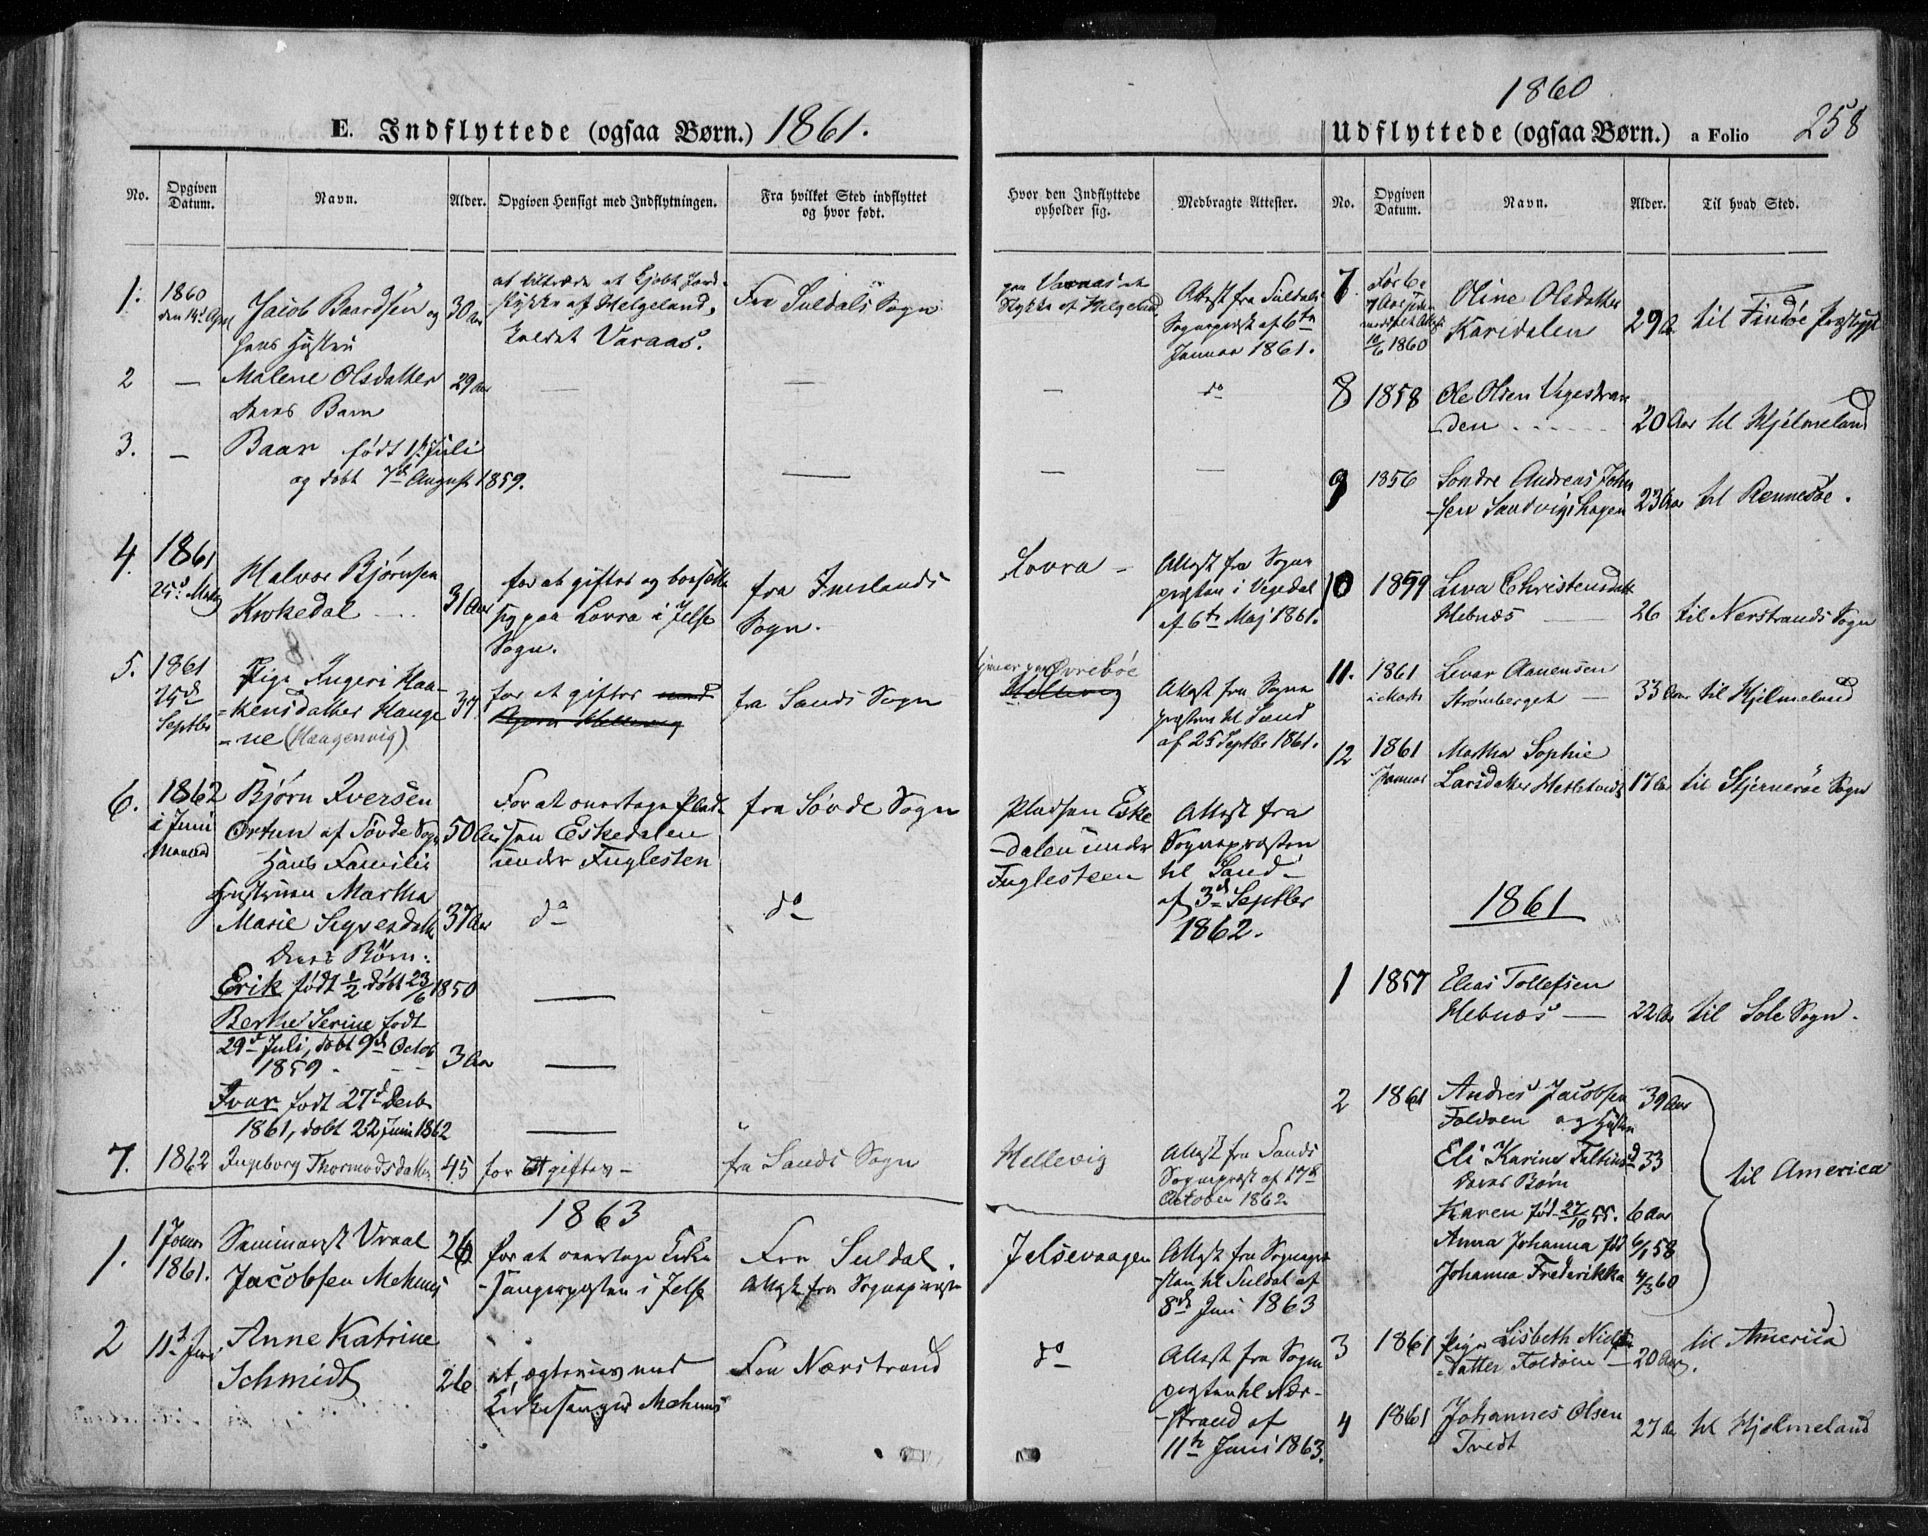 E. Indflyttede (ogsaa Børn.) 1861.
No.
Opgiven Datum.
Navn.
Alder.
Opgiven Hensigt med Indflytningen.
Fra hvilket Sted indflyttet
og hvor født.
1.
1860
Jacob Baardsen og
hans Hustru
30 Aar
at tiltræde et Kjøbt Jord-
stykke af Helgeland,
kaldet Varaas.
Fra Suldals Sogn
2
—
Malene Olsdatter
29 Aar
—
—
Deres Barn
3.
—
Baar født Juli
og døbt 7de August 1859.
—
4.
1861
Halvor Bjørnsen
Krokedal
31 Aar
for at giftes og bosætte
sig paa Lovra i Jelse
Sogn.
fra Imslands
Sogn.
5.
1861
25de
Septbr
Pige Ingeri Haa-
-kensdatter Hauge
-ne (Haagenvig)
37
for at giftes med
fra Sands Sogn
6.
1862
i Juni
Maaned
Bjørn Iversen
Ortun af Søvde Sogn
50 Aar
For at overtage Plad-
sen Eskedalen
under Fuglesten
fra Søvde Sogn
Hans Familie
Hustruen Martha
Marie Sigvesdatt
37 Aar
do
do
Deres Børn:
Erik født 1/2 døbt 23/6 1850
—
Berthe Serine født
29de Juli, døbt 9de Octob
1859
3 Aar
—
Ivar født 27de Decb
1861, døbt 22 Juni 1862
—
7.
1862
Ingeborg Thormodsdatter
45
for at giftes
fra Sands Sogn
1863
1.
1 Januar
1861.
Seminarist Vraal
Jacobsen Mehuus
26
for at overtage Kirke
-sangerposten i Jelse
Fra Suldal.
Attest fra Sognepræsten
2
11te Juni
Anne Katrine
Schmidt
26
at ægtevies med
Kirkesanger Mehuus
Fra Nærstrand
Hvor den Indflyttede
opholder sig.
Medbragte Attester.
paa Varaas et
Stykke af Helgeland
Attest fra Suldals
Sognepræst af 6te
Januar 1861.
—
do
—
—
Lovra —
Attest fra Sogne
præsten i Vigedal
af 6te Maj 1861.
Øvrebøe
Hellevig
Attest fra Sogne
præsten til Sand
af 25 Septbr 1861.
Pladsen Eske
-dalen under
Fuglesteen
Attest fra
Sognepræsten
til Sand
af 3de Septbr
1862.
Hellevig
Attest fra Sands
Sognepræst af 17de
October 1862
Jelsevaagen
Attest fra Sognepræ
-sten til Suldal af
8de Juni 1863
do
Attest fra Sogne
præsten til Nær-
-strand af
11te Juni 1863.
1860
Udflyttede (ogsaa Børn.) a Folio 258
No.
Opgiven Datum.
Navn.
Alder.
Til hvad Sted.
7
10/6 1860
Oline Olsdatter
Karidalen
29 Aar
til Findøe Præstegj
8
1858
Ole Olsen Vigestran
-den
20 Aar
til Hjelmeland
9
1856
Sondre Andreas John
-sen Sandvigshagen
23 Aar
til Rennesøe.
10
1859
Liva Christensdatt
Hebnæs —
26
til Nerstrands Sogn
11.
1861
i Marts
Levar Aanensen
Strømberget —
33 Aar
til Hjelmeland
12
1861
Januar
Martha Sophie
Larsdatter
17 Aar
til Stjernerøe Sogn
1861
1
1857
Elias Tollefsen
Hebnæs —
22 Aar
til Sole Sogn.
2
1861
Andres Jacobsen
39 Aar
Foldøen og Hustru
Eli Karine
33
Deres Børn
Karen fød. 27/10 55.
6 Aar
Anna Johanna fød
6/1 58
Johanna Frederikka
4/3 60
til America
3
1861
Pige Lisbeth Niels
-Datter Foldøen —
20 Aar.
til America
4
1861
Johannes Olsen
Tvedt
27 Aar
til Hjelmeland